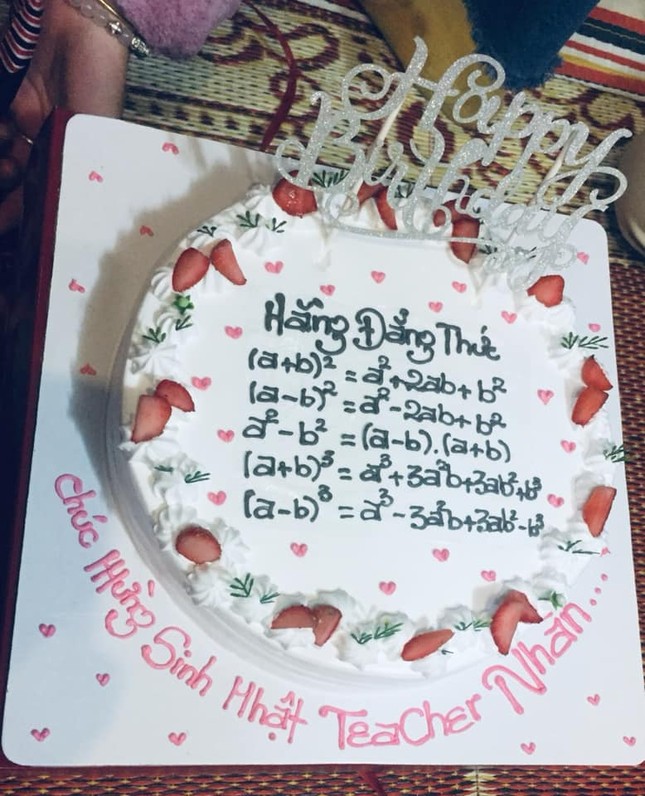 Happy
Birthday
Hằng Đẳng Thức
(a+b)² = a²+2ab+b²
(a-b)² = a²-2ab+b²
a²-b² = (a-b).(a+b)
(a+b)³ = a³+3a²b+3ab²+b³
(a-b)³ = a³-3a²b+3ab²-b³
Chúc Mừng Sinh Nhật Teacher Nhân...